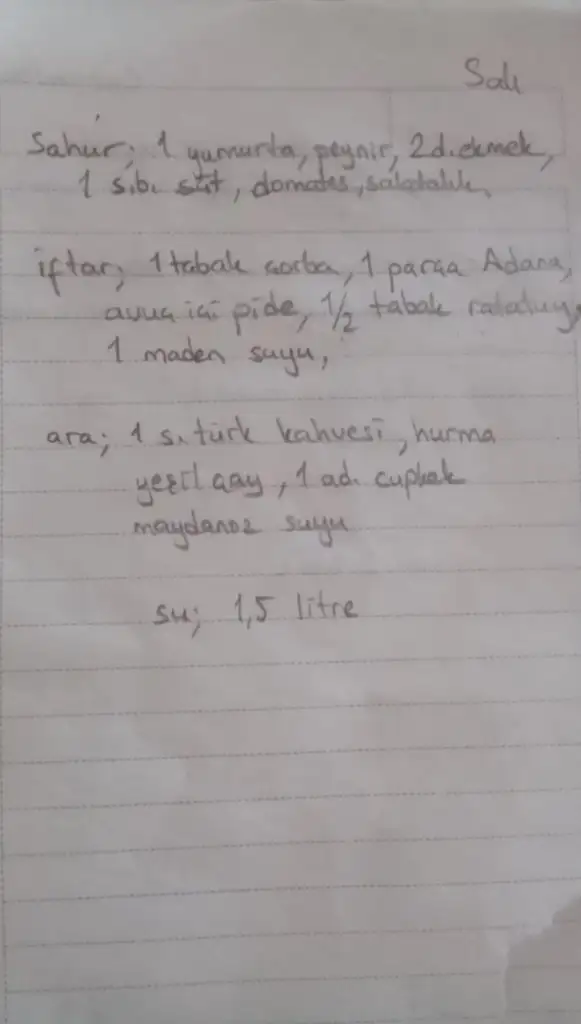 Salı
Sahur; 1 yumurta, peynir, 2 d. ekmek,
1 s.b. süt, domates, salatalık,
iftar; 1 tabak çorba, 1 parça Adana,
avuç içi pide, 1/2 tabak ratatuy,
1 maden suyu,
ara; 1 s. türk kahvesi, hurma
yeşil çay, 1 ad. cupkek
maydanoz suyu
su; 1,5 litre